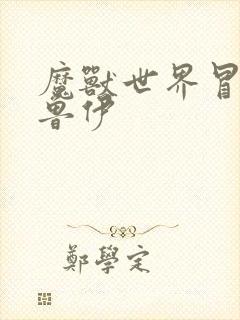 魔獸世界冒
魯伊
鄭學定